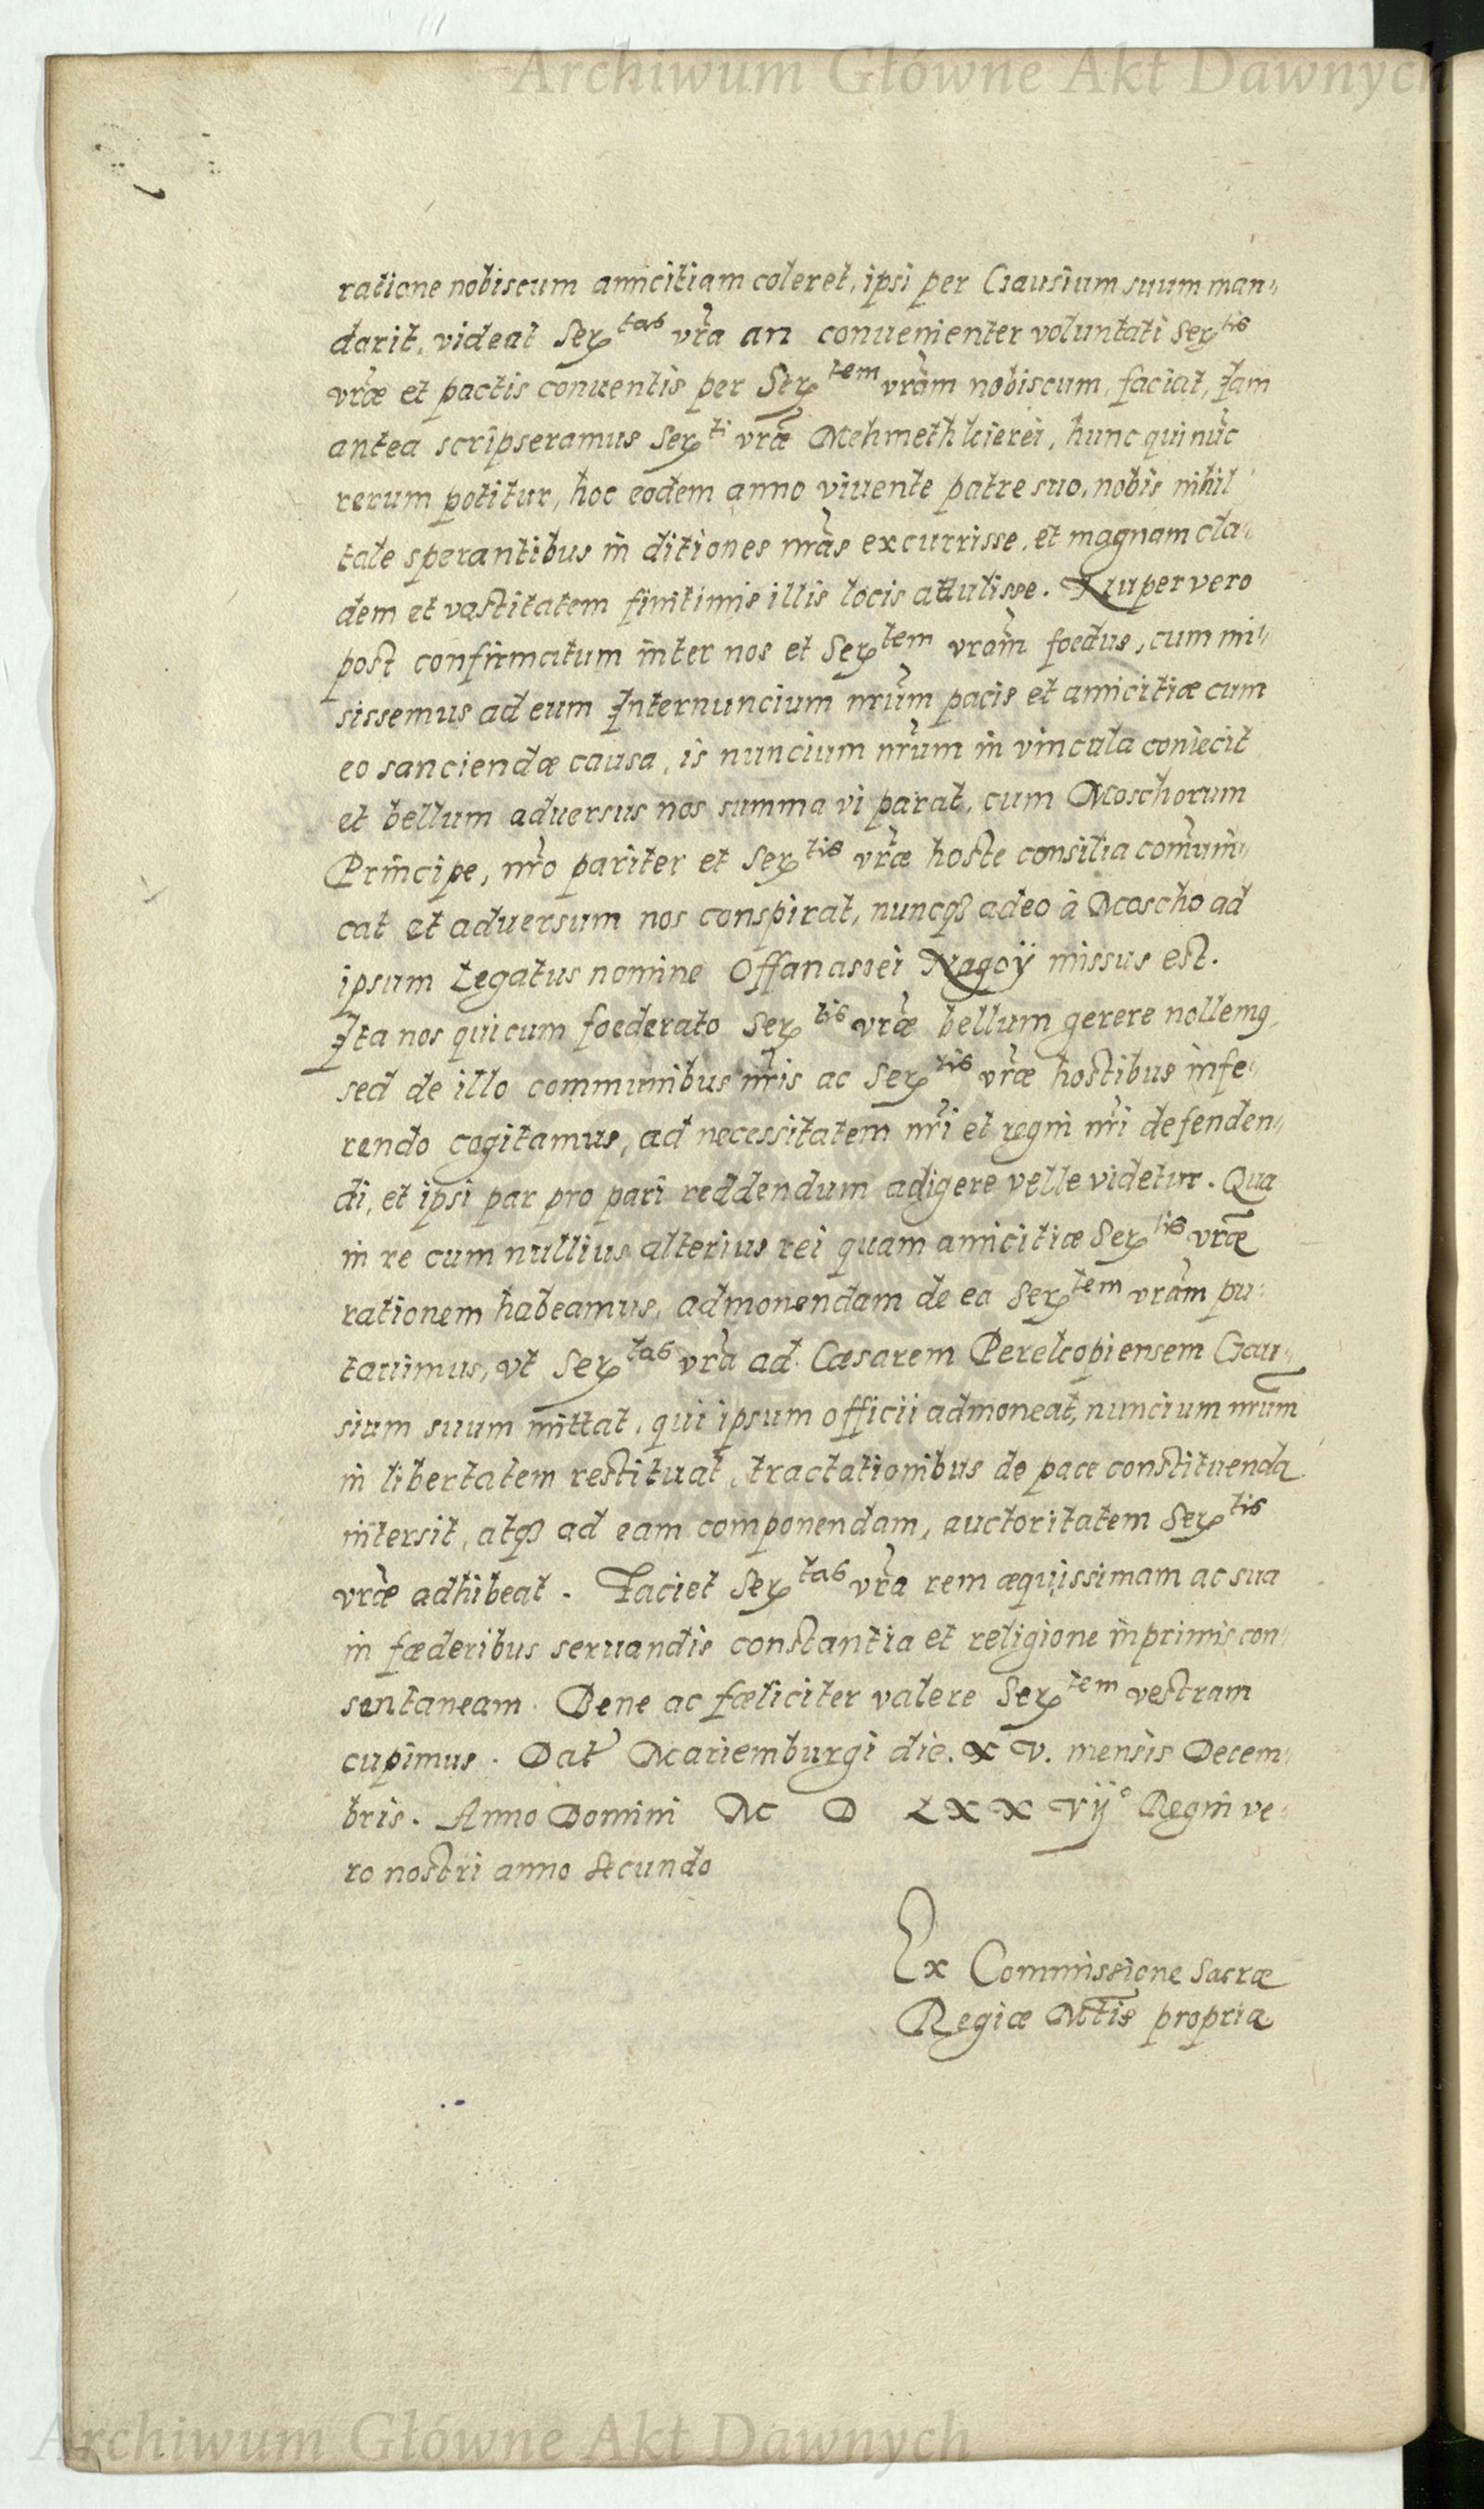 Archiwum Główne Akt Dawnych
ratione nobiscum amicitiam coleret, ipsi per Czausium suum man„
darit, videat Ser^tas vr̃a an conuenienter voluntati Ser^tis
vr̃æ et pactis conuentis per Ser^tem vr̃am nobiscum, faciat, Jam
antea scripseramus Ser^ti vr̃æ Mehmethkierei, hunc qui nũc
rerum potitur, hoc eodem anno viuente patre suo, nobis nihil
tale sperantibus in ditiones nr̃as excurrisse, et magnam cla„
dem et vastitatem finitimis illis locis attulisse. Nuper vero
post confirmatum inter nos et Ser^tem vram̃ foedus, cum mi„
sissemus ad eum Internuncium nr̃um pacis et amicitiæ cum
eo sanciendæ causa, is nuncium nr̃um in vincula coniecit
et bellum aduersus nos summa vi parat, cum Moschorum
Principe, nr̃o pariter et Ser^tis vr̃æ hoste consilia com̃uni„
cat et aduersum nos conspirat, nuncq₃ adeo à Moscho ad
ipsum Legatus nomine Offanasiei Nagoÿ missus est.
Ita nos qui cum foederato Ser^tis vr̃æ bellum gerere nollemꝰ,
sed de illo communibus nr̃is ac Ser^tis vr̃æ hostibus infe„
rendo cogitamus, ad necessitatem nr̃i et regni nr̃i defenden„
di, et ipsi par pro pari reddendum adigere velle videtur. Qua
in re cum nullius alterius rei quam amicitiæ Ser^tis vr̃æ
rationem habeamus, admonendam de ea Ser^tem vr̃am pu„
tauimus, vt Ser^tas vr̃a ad Cæsarem Perekopiensem Czau„
sium suum mittat, qui ipsum officii admoneat, nuncium nr̃um
in libertatem restituat, tractationibus de pace constituenda
intersit, atq₃ ad eam componendam, auctoritatem Ser^tis
vr̃æ adhibeat. Faciet Ser^tas vr̃a rem æquissimam ac sua
in fæderibus seruandis constantia et religione inprimis con„
sentaneam. Bene ac fæliciter valere Ser^tem vestram
cupimus. Dat̃ Mariemburgi die. X V. mensis Decem„
bris. Anno Domini M D L X X Vij° Regni ve„
ro nostri anno secundo
Ex Commissione Sacræ
Regiæ Mt̃is propria
Archiwum Główne Akt Dawnych